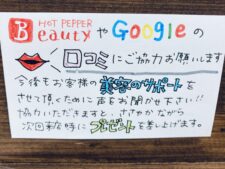 HOT PEPPER
BeautyやGoogleの
口コミにご協力お願いします
今後もお客様の美容のサポートを
させて頂くために声をお聞かせ下さい!!
協力いただきますと、ささやかながら
次回来店時にプレゼントを差し上げます。